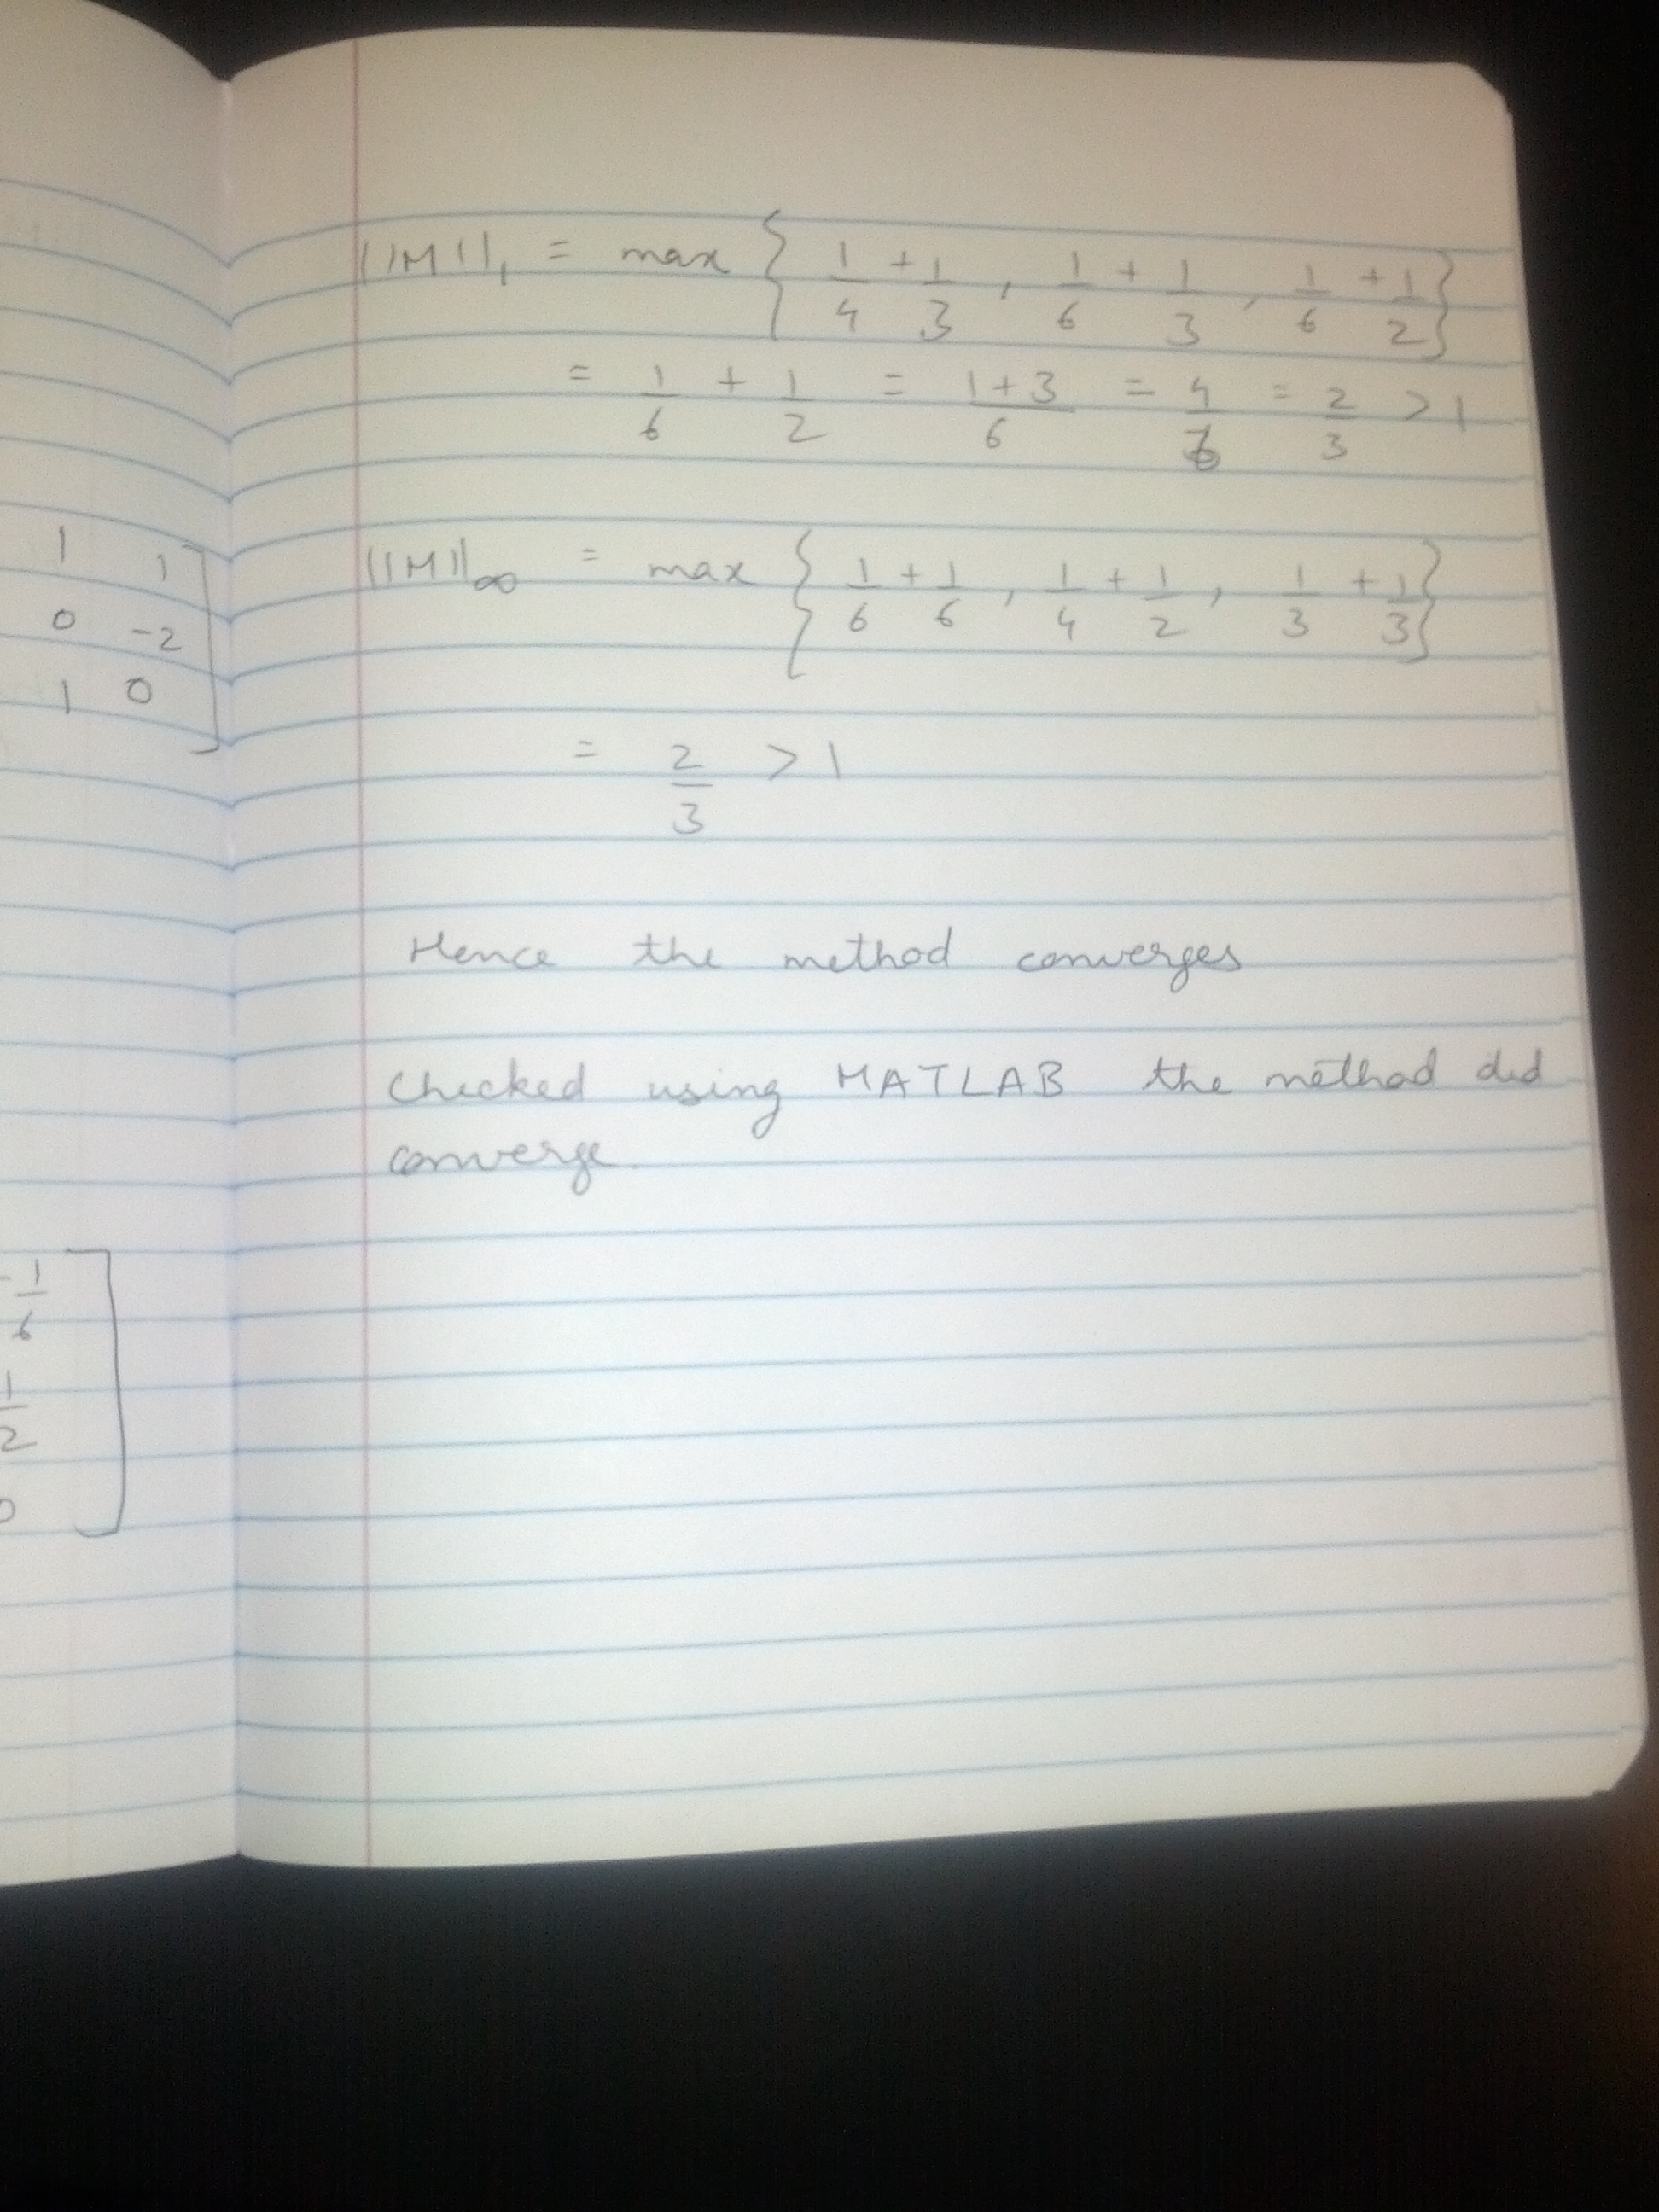 ||M||₁ = max { 1/4 + 1/3 , 1/6 + 1/3 , 1/6 + 1/2 }
= 1/6 + 1/2 = (1+3)/6 = 4/6 = 2/3 > 1
1 1
0 -2
1 0
||M||∞ = max { 1/6 + 1/6 , 1/4 + 1/2 , 1/3 + 1/3 }
= 2/3 > 1
Hence the method converges
Checked using MATLAB the method did
converge.
-1/6
1/2
0